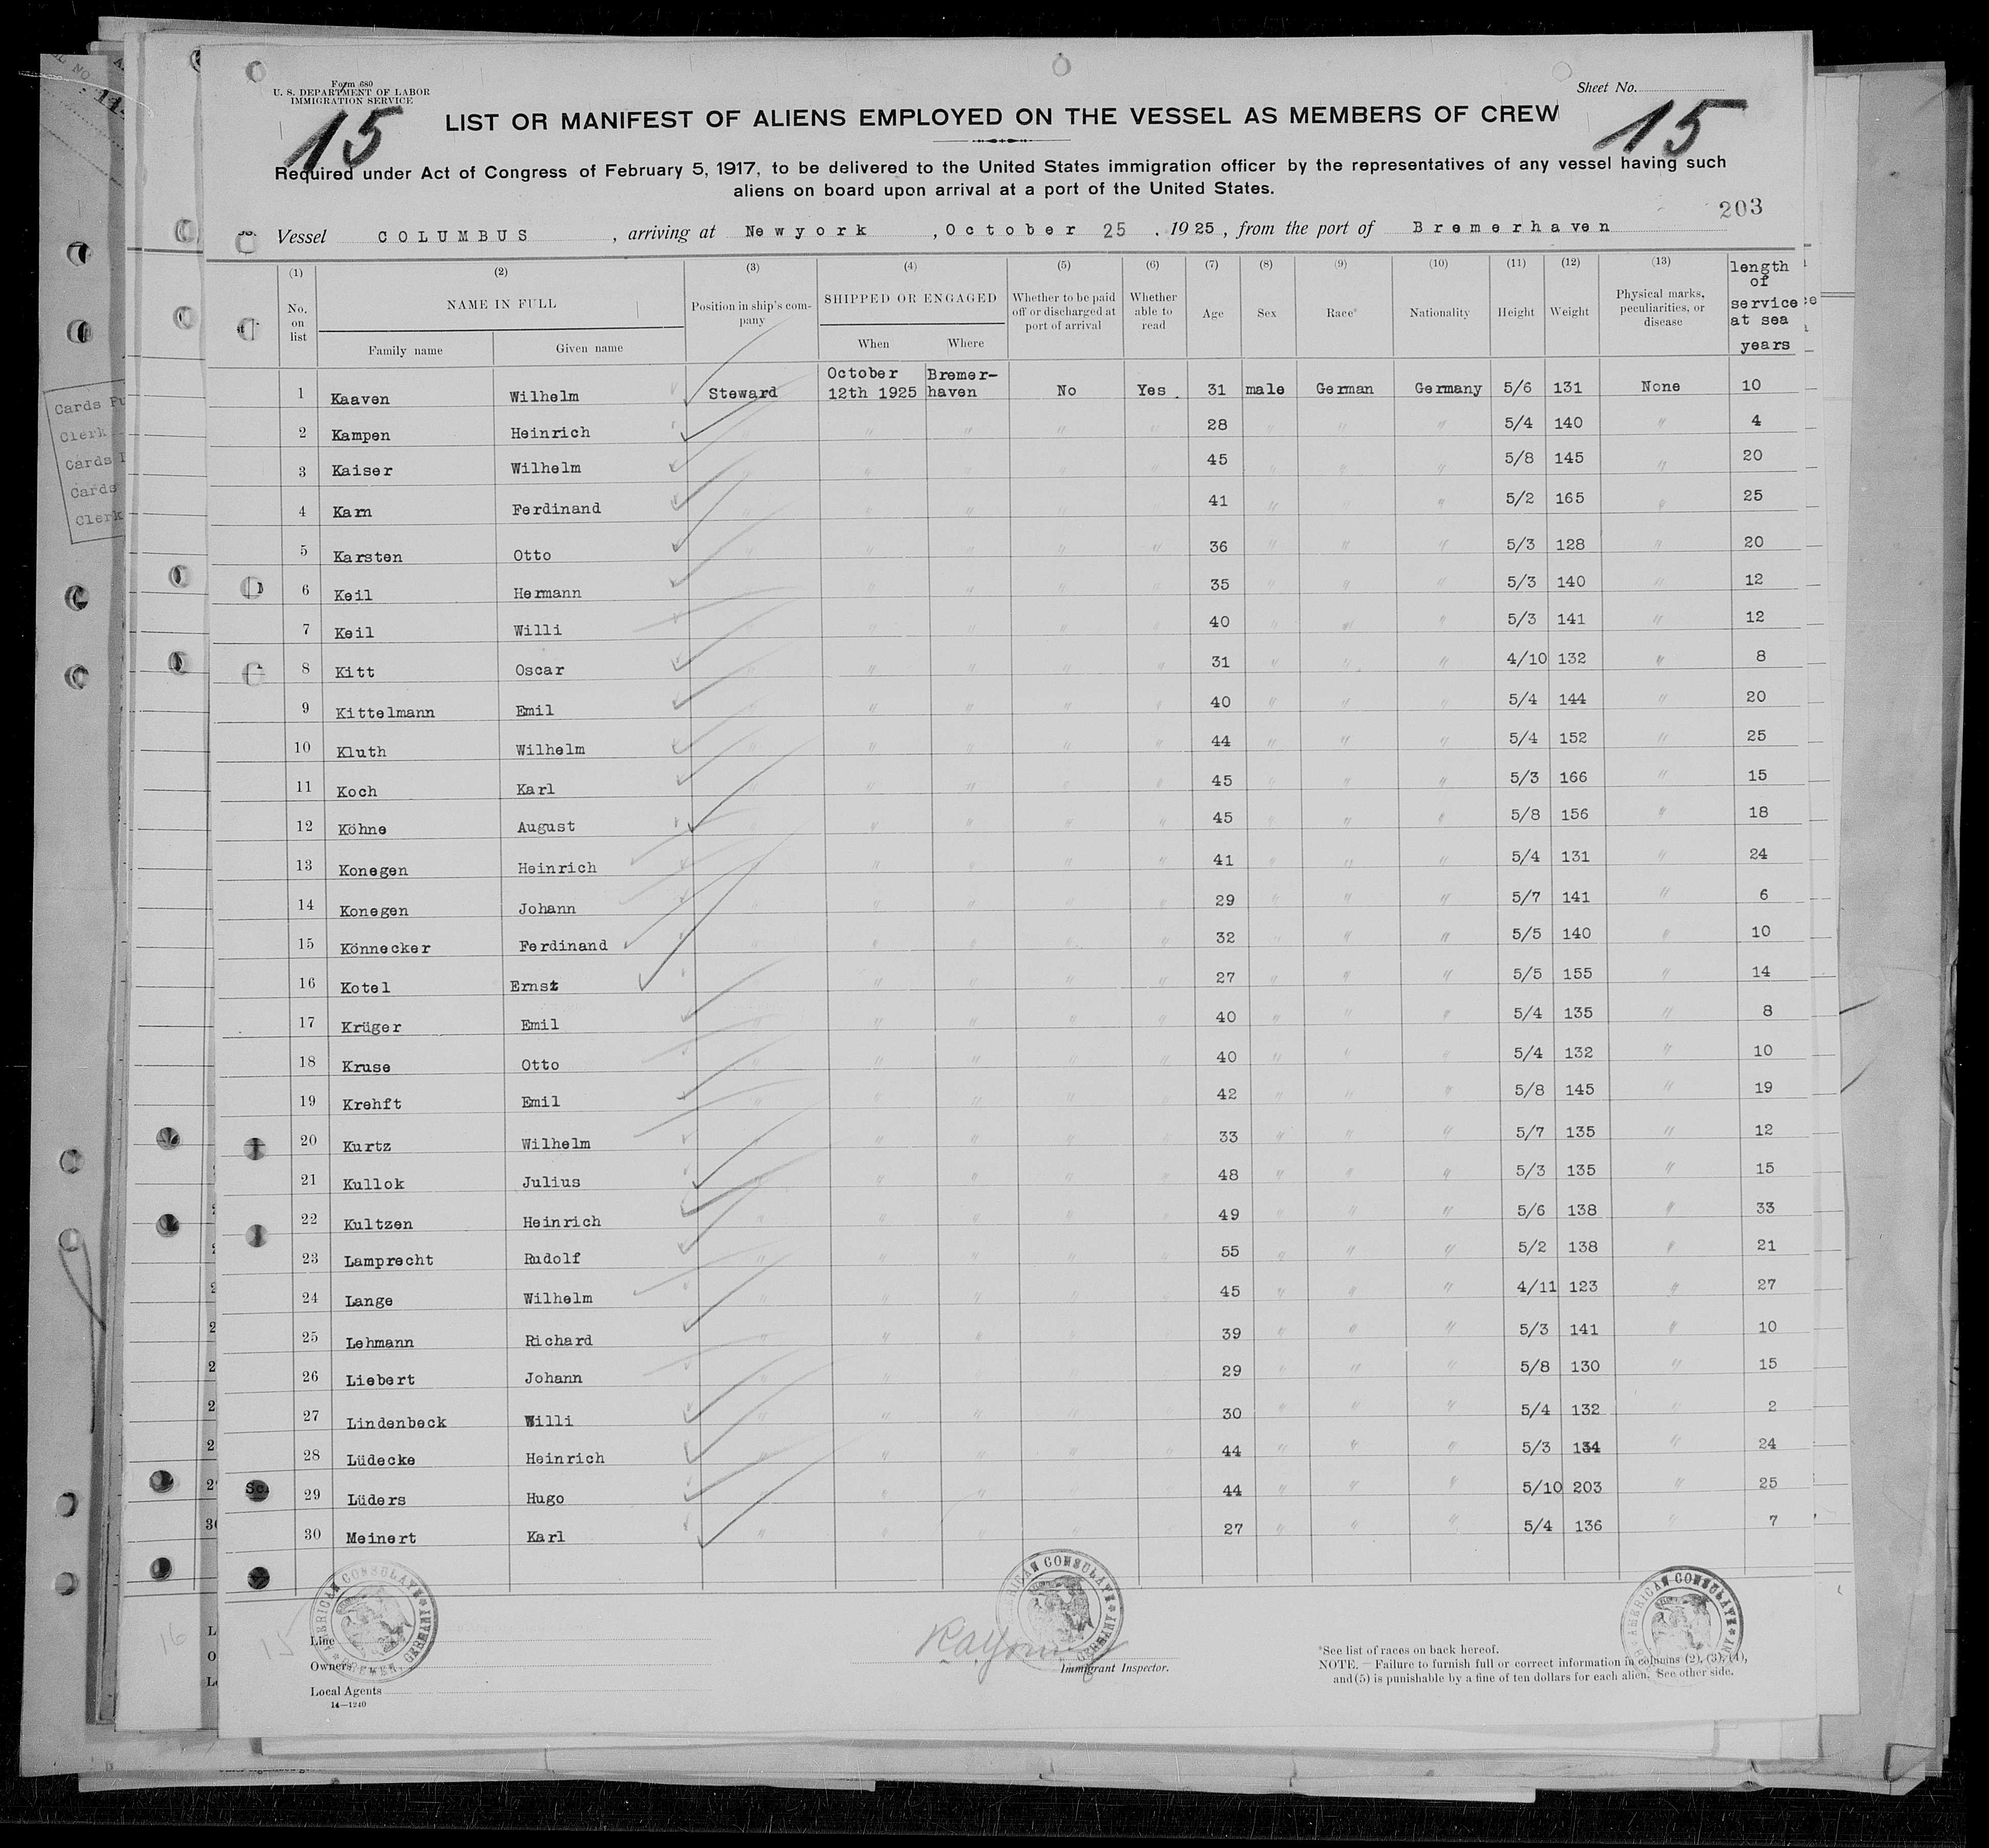 Form 680
U. S. DEPARTMENT OF LABOR
IMMIGRATION SERVICE
Sheet No.
15 15
LIST OR MANIFEST OF ALIENS EMPLOYED ON THE VESSEL AS MEMBERS OF CREW
Required under Act of Congress of February 5, 1917, to be delivered to the United States immigration officer by the representatives of any vessel having such
aliens on board upon arrival at a port of the United States.
203
Vessel COLUMBUS , arriving at Newyork , October 25 , 1925 , from the port of Bremerhaven
(1) (2) (3) (4) (5) (6) (7) (8) (9) (10) (11) (12) (13)
No. on list
NAME IN FULL
Family name Given name
Position in ship's company
SHIPPED OR ENGAGED
When Where
Whether to be paid off or discharged at port of arrival
Whether able to read
Age Sex Race* Nationality Height Weight
Physical marks, peculiarities, or disease
length of service at sea years
1 Kaaven Wilhelm Steward October 12th 1925 Bremer-haven No Yes 31 male German Germany 5/6 131 None 10
2 Kampen Heinrich " " " " " 28 " " " 5/4 140 " 4
3 Kaiser Wilhelm " " " " " 45 " " " 5/8 145 " 20
4 Karn Ferdinand " " " " " 41 " " " 5/2 165 " 25
5 Karsten Otto " " " " " 36 " " " 5/3 128 " 20
6 Keil Hermann " " " " " 35 " " " 5/3 140 " 12
7 Keil Willi " " " " " 40 " " " 5/3 141 " 12
8 Kitt Oscar " " " " " 31 " " " 4/10 132 " 8
9 Kittelmann Emil " " " " " 40 " " " 5/4 144 " 20
10 Kluth Wilhelm " " " " " 44 " " " 5/4 152 " 25
11 Koch Karl " " " " " 45 " " " 5/3 166 " 15
12 Köhne August " " " " " 45 " " " 5/8 156 " 18
13 Konegen Heinrich " " " " " 41 " " " 5/4 131 " 24
14 Konegen Johann " " " " " 29 " " " 5/7 141 " 6
15 Könnecker Ferdinand " " " " " 32 " " " 5/5 140 " 10
16 Kotel Ernst " " " " " 27 " " " 5/5 155 " 14
17 Krüger Emil " " " " " 40 " " " 5/4 135 " 8
18 Kruse Otto " " " " " 40 " " " 5/4 132 " 10
19 Krehft Emil " " " " " 42 " " " 5/8 145 " 19
20 Kurtz Wilhelm " " " " " 33 " " " 5/7 135 " 12
21 Kullok Julius " " " " " 48 " " " 5/3 135 " 15
22 Kultzen Heinrich " " " " " 49 " " " 5/6 138 " 33
23 Lamprecht Rudolf " " " " " 55 " " " 5/2 138 " 21
24 Lange Wilhelm " " " " " 45 " " " 4/11 123 " 27
25 Lehmann Richard " " " " " 39 " " " 5/3 141 " 10
26 Liebert Johann " " " " " 29 " " " 5/8 130 " 15
27 Lindenbeck Willi " " " " " 30 " " " 5/4 132 " 2
28 Lüdecke Heinrich " " " " " 44 " " " 5/3 134 " 24
29 Lüders Hugo " " " " " 44 " " " 5/10 203 " 25
30 Meinert Karl " " " " " 27 " " " 5/4 136 " 7
AMERICAN CONSULATE * BREMEN, GERMANY *
AMERICAN CONSULATE
AMERICAN CONSULATE
16 15
Line
Owners
Local Agents
14—1240
Immigrant Inspector.
*See list of races on back hereof.
NOTE.—Failure to furnish full or correct information in columns (2), (3), (4),
and (5) is punishable by a fine of ten dollars for each alien. See other side.
Cards
Clerk
Cards
Cards
Clerk